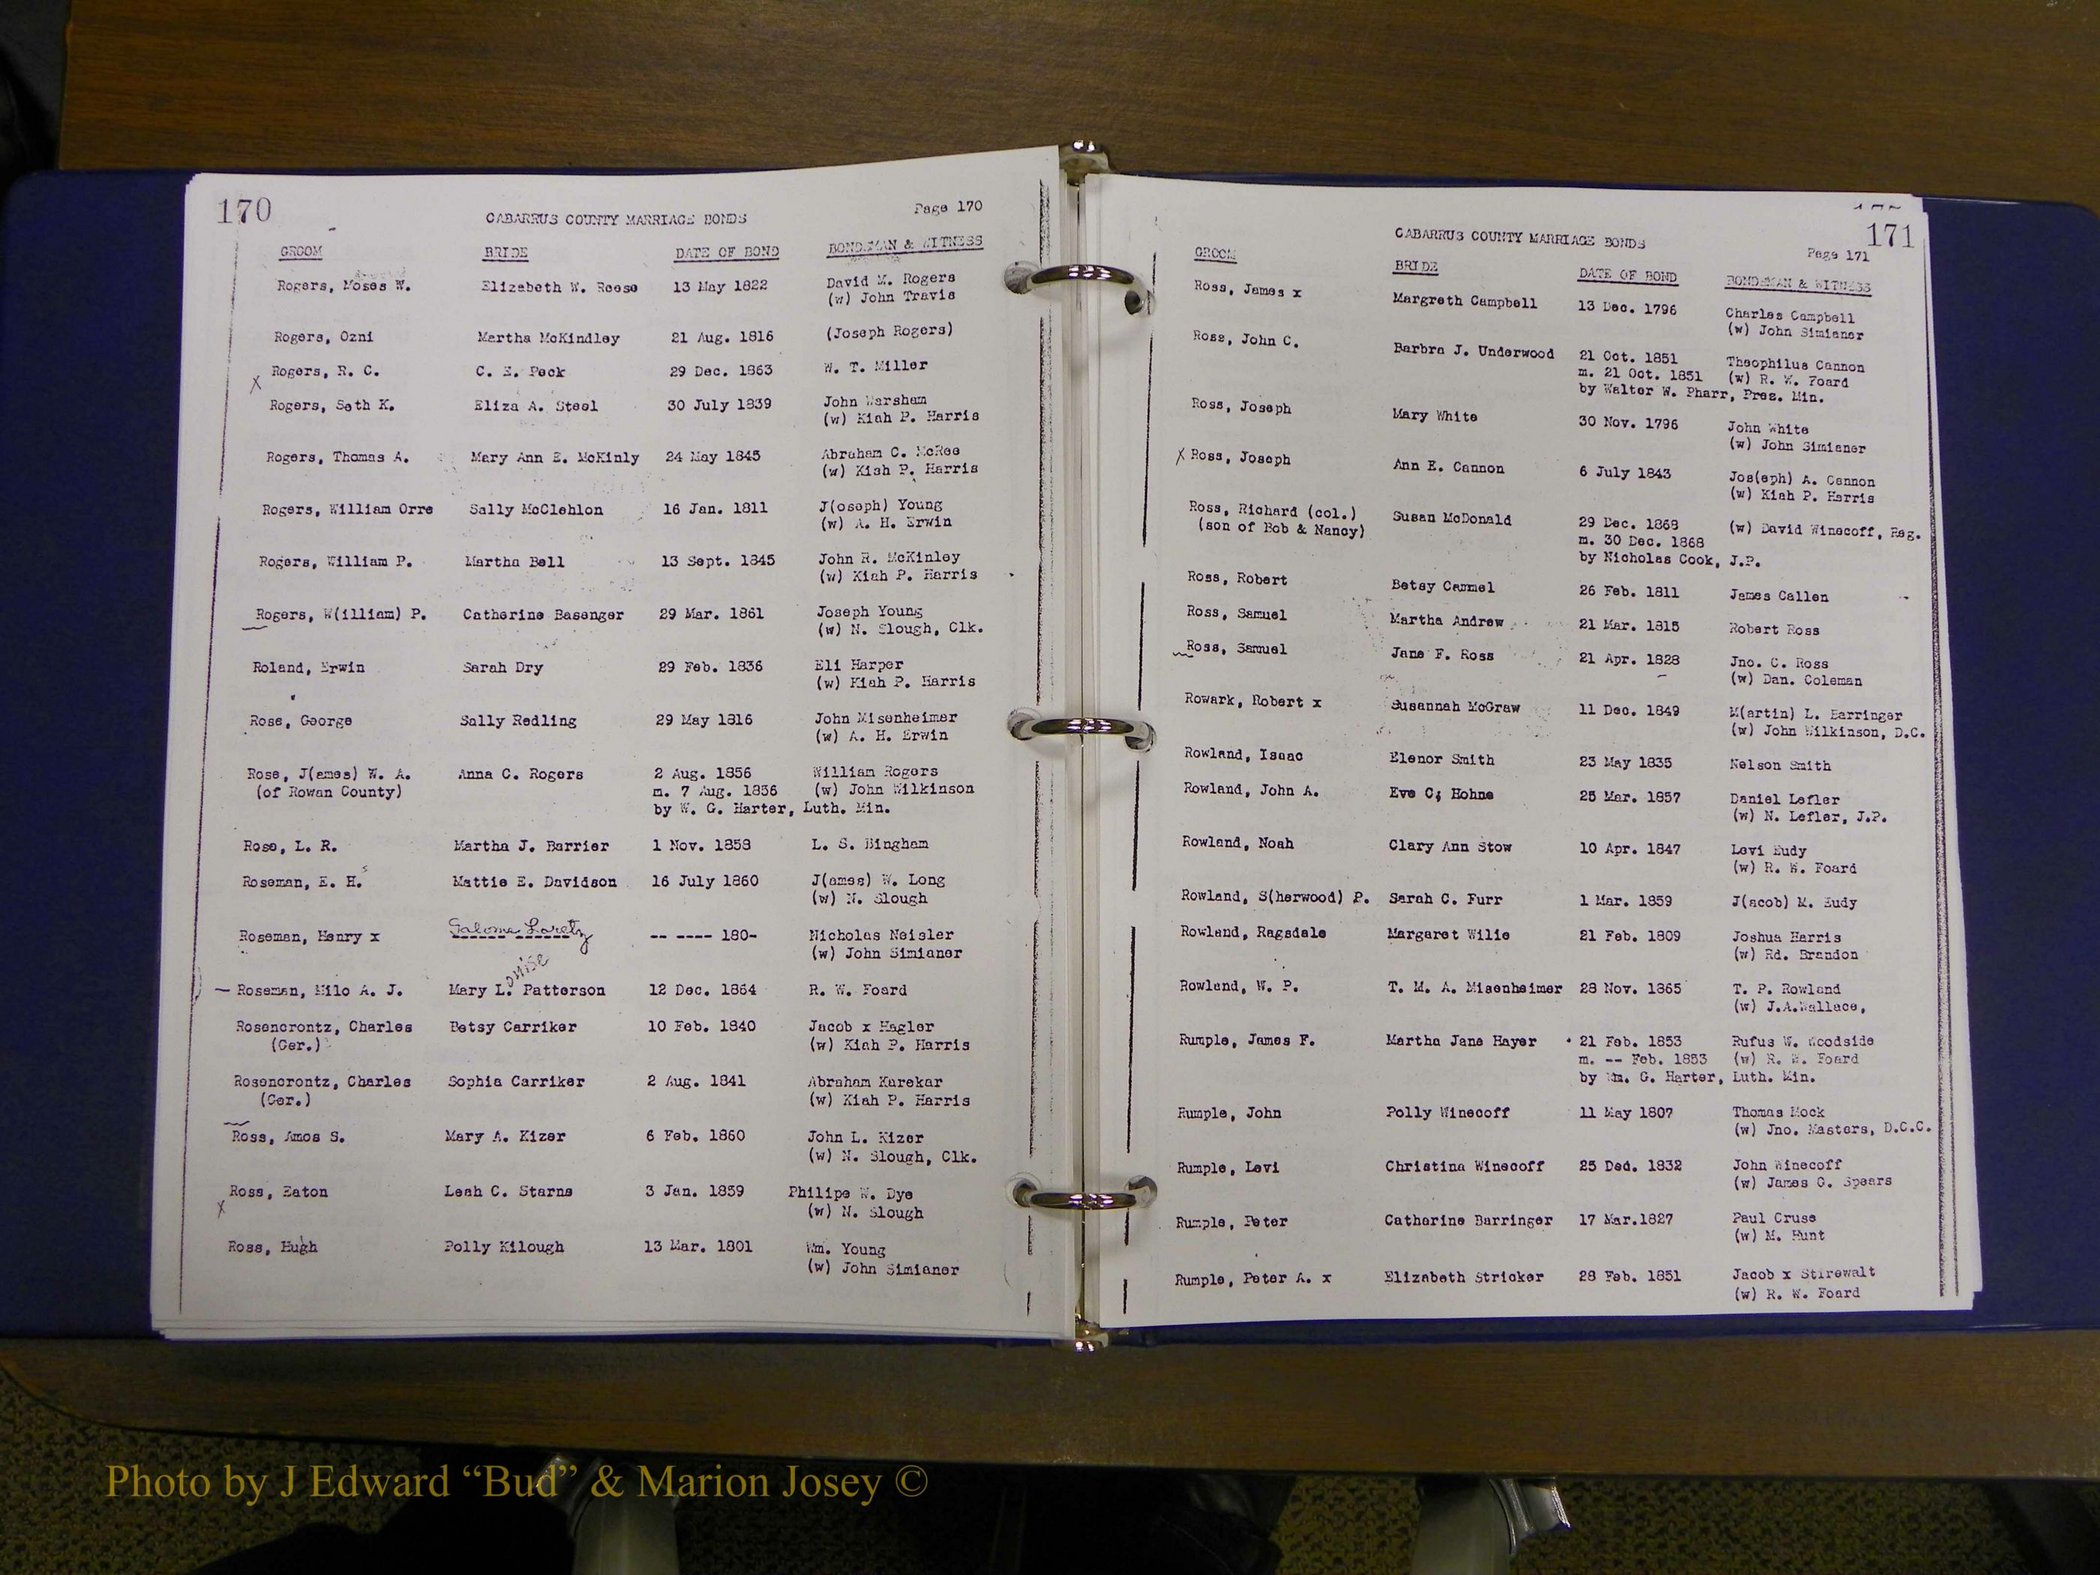 170
CABARRUS COUNTY MARRIAGE BONDS
Page 170
GROOM BRIDE DATE OF BOND BONDSMAN & WITNESS
Rogers, Moses W. Elizabeth W. Reese 13 May 1822 David M. Rogers
(w) John Travis
Rogers, Ozni Martha McKindley 21 Aug. 1816 (Joseph Rogers)
Rogers, R. C. C. E. Peck 29 Dec. 1863 W. T. Miller
x
Rogers, Seth K. Eliza A. Steel 30 July 1839 John Warsham
(w) Kiah P. Harris
Rogers, Thomas A. Mary Ann E. McKinly 24 May 1845 Abraham C. McRee
(w) Kiah P. Harris
Rogers, William Orre Sally McClehlon 16 Jan. 1811 J(oseph) Young
(w) A. H. Erwin
Rogers, William P. Martha Bell 13 Sept. 1845 John R. McKinley
(w) Kiah P. Harris
Rogers, W(illiam) P. Catherine Basenger 29 Mar. 1861 Joseph Young
(w) N. Slough, Clk.
Roland, Erwin Sarah Dry 29 Feb. 1836 Eli Harper
(w) Kiah P. Harris
Rose, George Sally Redling 29 May 1816 John Misenheimer
(w) A. H. Erwin
Rose, J(ames) W. A. Anna C. Rogers 2 Aug. 1856 William Rogers
(of Rowan County) m. 7 Aug. 1856 (w) John Wilkinson
by W. G. Harter, Luth. Min.
Rose, L. R. Martha J. Barrier 1 Nov. 1858 L. S. Bingham
Roseman, E. H. Mattie E. Davidson 16 July 1860 J(ames) W. Long
(w) N. Slough
Roseman, Henry x Salome Loretz -- ---- 180- Nicholas Neisler
(w) John Simianer
ouise
— Roseman, Milo A. J. Mary L. Patterson 12 Dec. 1864 R. W. Foard
Rosencrontz, Charles Betsy Carriker 10 Feb. 1840 Jacob x Hagler
(Ger.) (w) Kiah P. Harris
Rosencrontz, Charles Sophia Carriker 2 Aug. 1841 Abraham Karekar
(Ger.) (w) Kiah P. Harris
Ross, Amos S. Mary A. Kizer 6 Feb. 1860 John L. Kizer
(w) N. Slough, Clk.
Ross, Eaton Leah C. Starns 3 Jan. 1859 Philipe W. Dye
x (w) N. Slough
Ross, Hugh Polly Kilough 13 Mar. 1801 Wm. Young
(w) John Simianer
171
CABARRUS COUNTY MARRIAGE BONDS
Page 171
GROOM BRIDE DATE OF BOND BONDSMAN & WITNESS
Ross, James x Margreth Campbell 13 Dec. 1796 Charles Campbell
(w) John Simianer
Ross, John C. Barbra J. Underwood 21 Oct. 1851 Theophilus Cannon
m. 21 Oct. 1851 (w) R. W. Foard
by Walter W. Pharr, Pres. Min.
Ross, Joseph Mary White 30 Nov. 1796 John White
(w) John Simianer
x Ross, Joseph Ann E. Cannon 6 July 1843 Jos(eph) A. Cannon
(w) Kiah P. Harris
Ross, Richard (col.) Susan McDonald 29 Dec. 1868 (w) David Winecoff, Reg.
(son of Bob & Nancy) m. 30 Dec. 1868
by Nicholas Cook, J.P.
Ross, Robert Betsy Cammel 26 Feb. 1811 James Callen
Ross, Samuel Martha Andrew 21 Mar. 1815 Robert Ross
Ross, Samuel Jane F. Ross 21 Apr. 1828 Jno. C. Ross
(w) Dan. Coleman
Rowark, Robert x Susannah McGraw 11 Dec. 1849 M(artin) L. Barringer
(w) John Wilkinson, D.C.
Rowland, Isaac Elenor Smith 23 May 1835 Nelson Smith
Rowland, John A. Eve C. Hohne 25 Mar. 1857 Daniel Lefler
(w) N. Lefler, J.P.
Rowland, Noah Clary Ann Stow 10 Apr. 1847 Levi Eudy
(w) R. W. Foard
Rowland, S(herwood) P. Sarah C. Furr 1 Mar. 1859 J(acob) M. Eudy
Rowland, Ragsdale Margaret Wilie 21 Feb. 1809 Joshua Harris
(w) Rd. Brandon
Rowland, W. P. T. M. A. Misenheimer 28 Nov. 1865 T. P. Rowland
(w) J.A.Wallace,
Rumple, James F. Martha Jane Hayer 21 Feb. 1853 Rufus W. Woodside
m. -- Feb. 1853 (w) R. W. Foard
by Wm. G. Harter, Luth. Min.
Rumple, John Polly Winecoff 11 May 1807 Thomas Mock
(w) Jno. Masters, D.C.C.
Rumple, Levi Christina Winecoff 25 Ded. 1832 John Winecoff
(w) James G. Spears
Rumple, Peter Catherine Barringer 17 Mar.1827 Paul Cruse
(w) M. Hunt
Rumple, Peter A. x Elizabeth Stricker 28 Feb. 1851 Jacob x Stirewalt
(w) R. W. Foard
Photo by J Edward “Bud” & Marion Josey ©